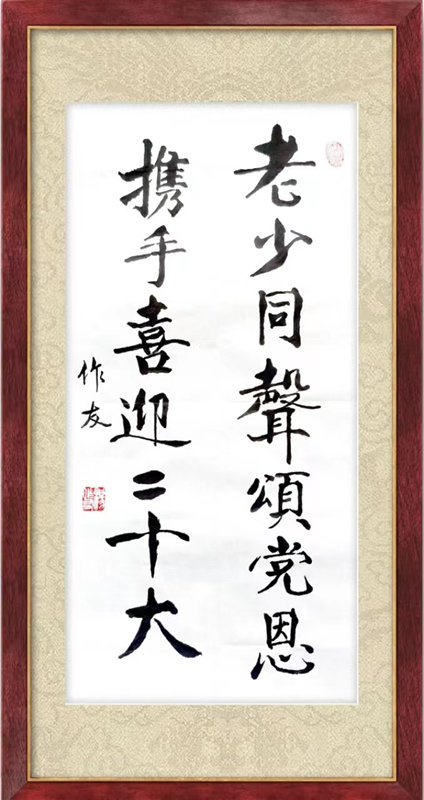 老少同聲頌党恩
携手喜迎二十大
作友